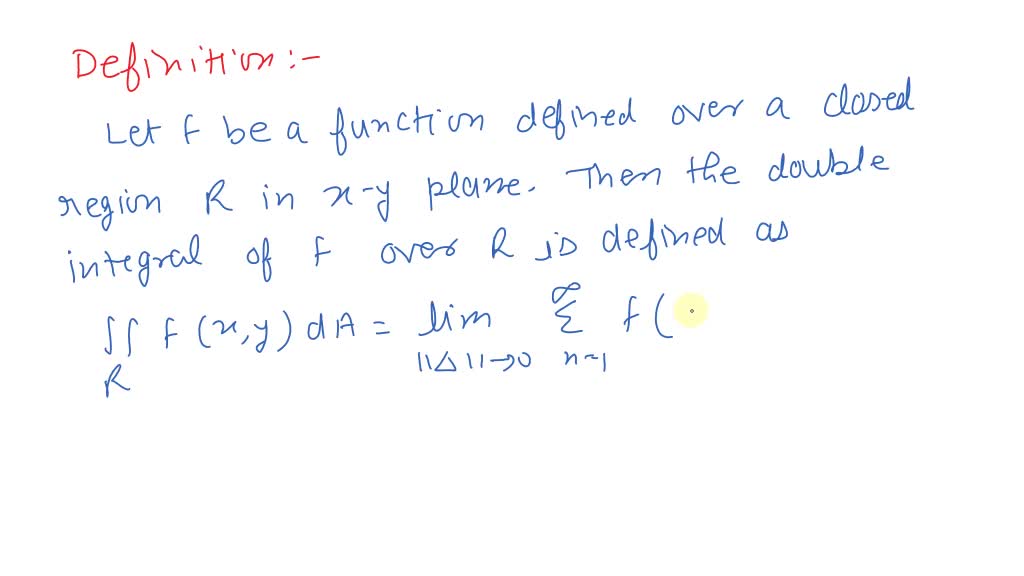 Definition:-
Let f be a function defined over a closed
region R in x-y plane. Then the double
integral of f over R is defined as
∬_R f(x,y) dA = lim_{||Δ||→0} ∑_{n=1}^{∞} f(